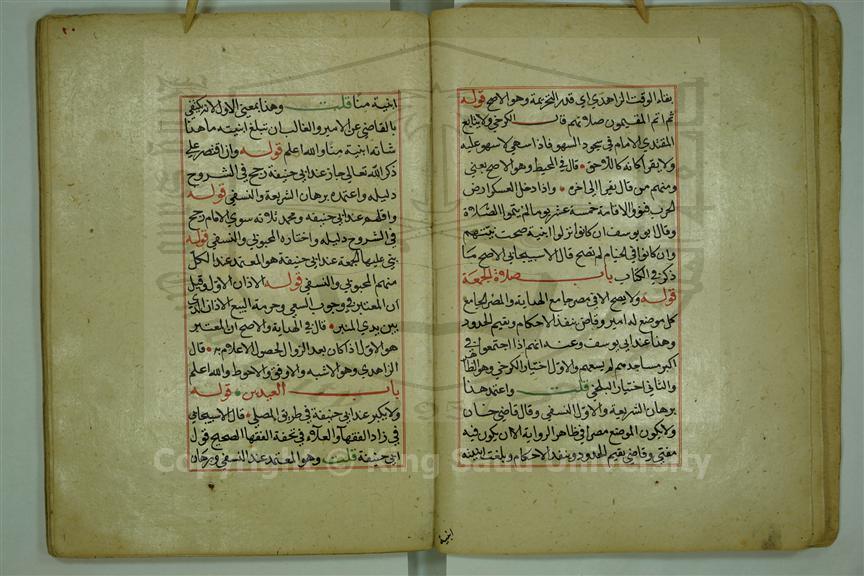 بقاء الوقت الزاهدي اي قدر التحريمة وهو الاصح قوله
ثم اتم المقيمون صلاتهم قال الكرخي ولا يتابع
المقتدي الامام في سجود السهو فاذا سهى لا سهو عليه
ولا يقرأ كانه كاللاحق قال في المحيط وهو الاصح يعني
ومنهم من قال يقرا الى اخره واذا دخل العسكر ارض
الحرب فنووا الاقامة خمسة عشر يوما لم يتموا الصلاة
وقال ابو يوسف ان كانوا نزلوا ابنية صحت نيتهم
وان كانوا في الخيام لم تصح قال الاسبيجابي الاصح ما
ذكر في الكتاب باب صلاة الجمعة
قوله ولا يصح الا في مصر جامع الهداية والمصر الجامع
كل موضع له امير وقاض ينفذ الاحكام ويقيم الحدود
وهذا عند ابي يوسف وعنه انهم اذا اجتمعوا في
اكبر مساجدهم لم يسعهم والاول اختيار الكرخي وهو الظاهر
والثاني اختيار البلخي قلت واعتمد هذا
برهان الشريعة والاول النسفي وقال قاضي خان
ولا يكون الموضع مصرا في ظاهر الرواية الا ان يكون فيه
مفتي وقاضي يقيم الحدود وينفذ الاحكام وبلغت ابنيته
ابنية
٢٠
ابنية منا قلت وهذا بمعنى الاول لانه يكتفي
بالقاضي عن الامير والغالب ان تبلغ ابنيته ما هذا
شانه ابنية منا والله اعلم قوله وان اقتصر على
ذكر الله تعالى جاز عند ابي حنيفة رجح في الشروح
دليله واعتمده برهان الشريعة والنسفي قوله
واقلهم عند ابي حنيفه ومحمد ثلاثه سوى الامام رجح
في الشروح دليله واختاره المحبوبي والنسفي قوله
بنى عليها الجمعة عند ابي حنيفة هو المعتمد عند الكل
منهم المحبوبي والنسفي قوله الاذان الاول وقيل
ان المعتبر في وجوب السعي وحرمة البيع الاذان الذي
بين يدي المنبر قال في الهداية والاصح ان المعتبر
هو الاول اذا كان بعد الزوال لحصول الاعلام به قال
الزاهدي وهو الاشبه والاوفق والاحوط والله اعلم
باب العيدين قوله
ولا يكبر عند ابي حنيفة في طريق المصلى قال الاسبيجابي
في زاد الفقهاء والعلاء في تحفة الفقها الصحيح قول
ابي حنيفة قلت وهو المعتمد عند النسفي وبرهان
Copyright © King Saud University